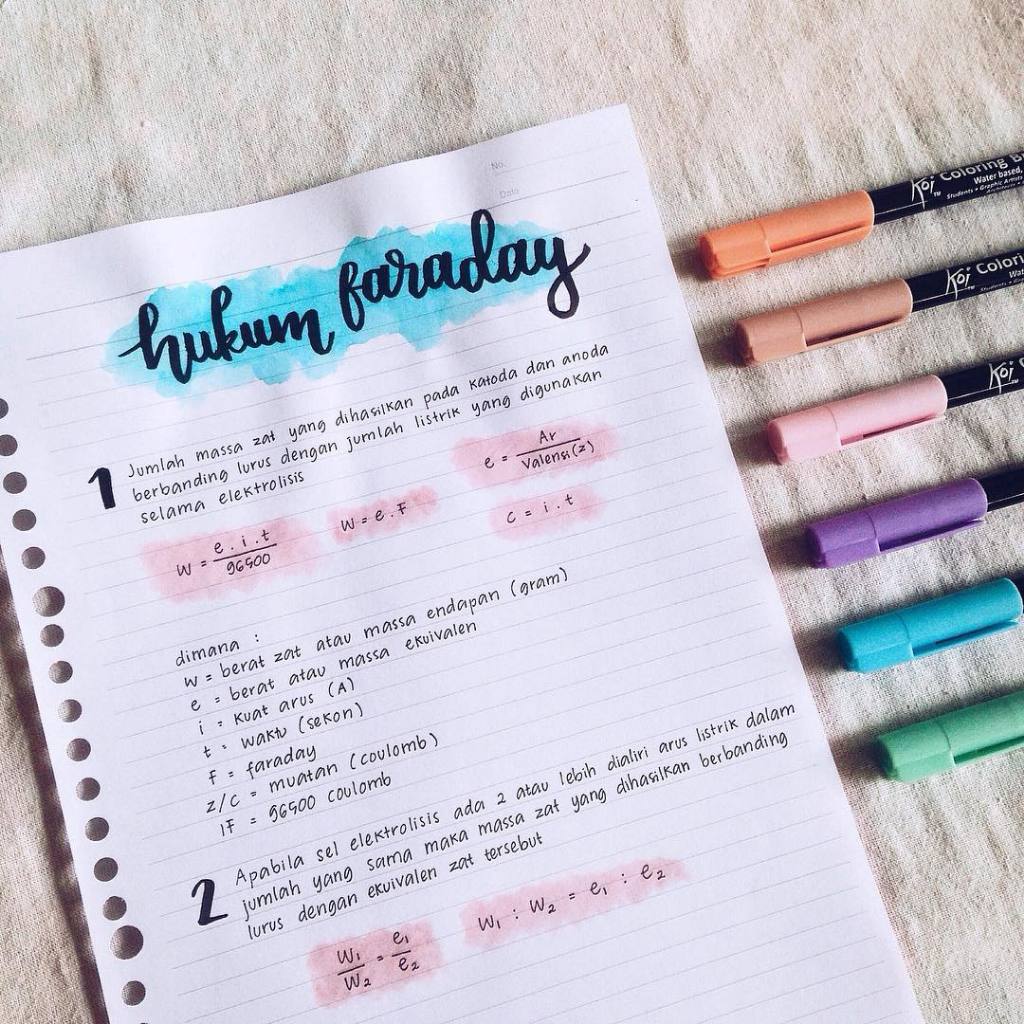 No.
Date
hukum faraday
1 Jumlah massa zat yang dihasilkan pada katoda dan anoda
berbanding lurus dengan jumlah listrik yang digunakan
selama elektrolisis
e = Ar / Valensi(z)
w = e . i . t / 96500
w = e . F
c = i . t
dimana :
w = berat zat atau massa endapan (gram)
e = berat atau massa ekuivalen
i = kuat arus (A)
t = waktu (sekon)
F = faraday
z/c = muatan (coulomb)
1F = 96500 coulomb
2 Apabila sel elektrolisis ada 2 atau lebih dialiri arus listrik dalam
jumlah yang sama maka massa zat yang dihasilkan berbanding
lurus dengan ekuivalen zat tersebut
W₁ / W₂ = e₁ / e₂
W₁ : W₂ = e₁ : e₂
Koi™ Coloring B
Water based,
Students • Graphic Artists
Koi™ Colori
Koi™